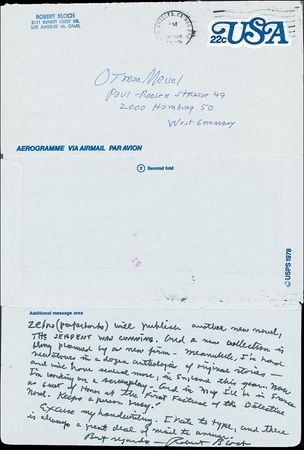 ROBERT BLOCH
2111 SUNSET CREST DR.
LOS ANGELES 46, CALIF.
LOS ANGELES, CA
PM
22c USA
Otman Meisel
Paul-Roosen Strasse 49
2000 Hamburg 50
West Germany
AEROGRAMME VIA AIRMAIL PAR AVION
2 Second fold
© USPS 1978
Additional message area
Zebra (paperbacks) will publish another new novel,
THE SERPENT WAS CUNNING. And a new collection is
being planned by a new firm. Meanwhile, I'll have
new stories in a dozen anthologies of original stories —
and will have several more in England this year. Now
I'm working on a screenplay. And in May I'll be in France
as Guest of Honor at the First Festival of the Detective
Novel. Keeps a person busy.
Excuse my handwriting. I hate to type, and there
is always a great deal of mail to answer.
Best regards — Robert Bloch